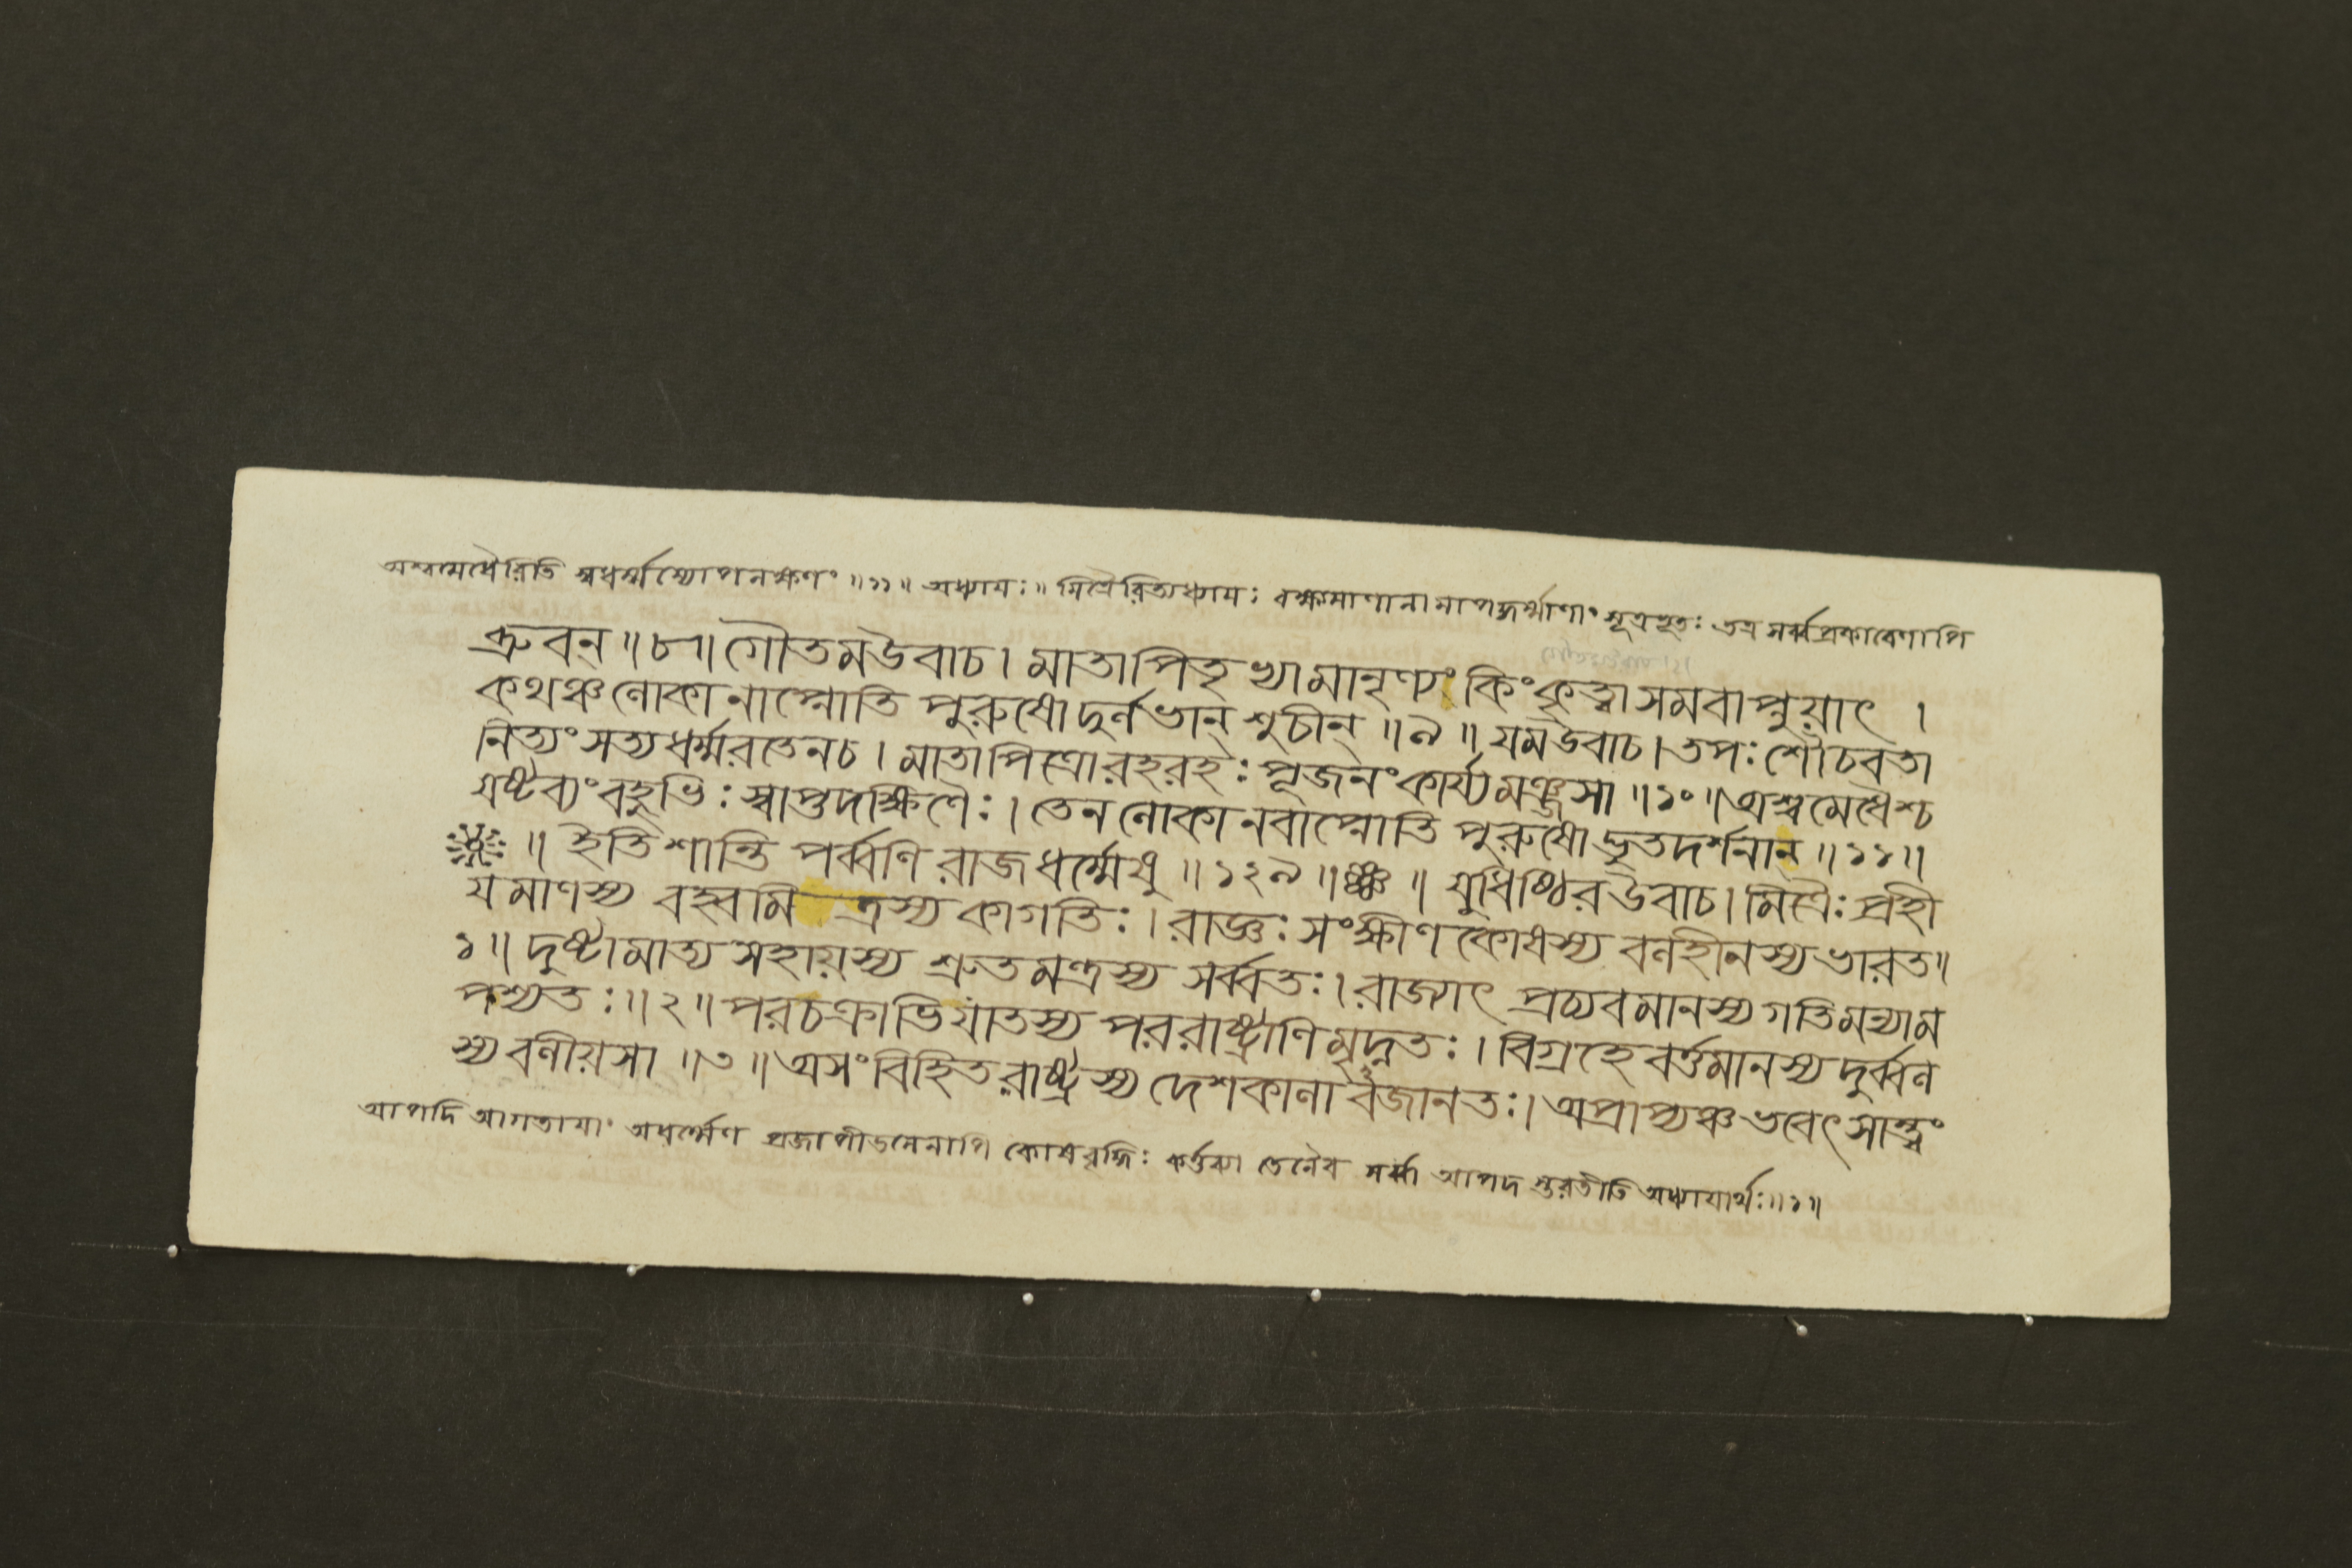 অশ্বমেধৈরিতি স্বধর্ম্মাস্যোপলক্ষণং ॥১১॥ অধ্যায়ঃ॥ মিত্রৈরিত্যধ্যায়ঃ বক্ষ্যমাণানামাপদ্ধর্ম্মাণাং সূত্রভূতঃ তত্র সর্ব্বপ্রকারেণাপি
ধ্রুবন্ ॥৮॥ গৌতমউবাচ। মাতাপিতৃভ্যামানৃণ্যং কিংকৃত্বা সমবাপ্নুয়াৎ ।
কথঞ্চলোকানাপ্নোতি পুরুষো দুর্লভান্ শুচীন্ ॥৯॥ যমউবাচ। তপঃ শৌচবতা
নিত্যং সত্যধর্ম্মরতেনচ। মাতাপিত্রোরহরহঃ পূজনং কার্য্যমঞ্জসা ॥১০॥ অশ্বমেধৈশ্চ
যষ্টব্যং বহুভিঃ স্বাপ্তদক্ষিণৈঃ। তেন লোকানবাপ্নোতি পুরুষোদ্ভুতদর্শনান্ ॥১১॥
॥ ইতি শান্তি পর্ব্বণি রাজধর্ম্মেষু ॥১২৯॥ ॥ যুধিষ্ঠিরউবাচ। মিত্রৈঃ প্রহী
যমাণস্য বহ্বমি ত্রস্য কাগতিঃ। রাজ্ঞঃ সংক্ষীণকোষস্য বলহীনস্য ভারত॥
১॥ দুষ্টামাত্য সহায়স্য শ্রুতমন্ত্রস্য সর্ব্বতঃ। রাজ্যাৎ প্রচ্যবমানস্য গতিমন্যাম
পশ্যতঃ॥২॥ পরচক্রাভিযাতস্য পররাষ্ট্রাণি মৃদ্নতঃ। বিগ্রহে বর্ত্তমানস্য দুর্ব্বল
স্য বলীয়সা ॥৩॥ অসংবিহিতরাষ্ট্রস্য দেশকালাবজানতঃ। অপ্রাপ্যঞ্চ ভবেৎ সান্ত্বং
আপদি আগতায়াং অধর্ম্মেণ প্রজাপীডনেনাপি কোষবৃদ্ধিঃ কর্ত্তব্যা তেনৈব সর্ব্বা আপদ স্তরতীতি অধ্যায়ার্থঃ॥১॥